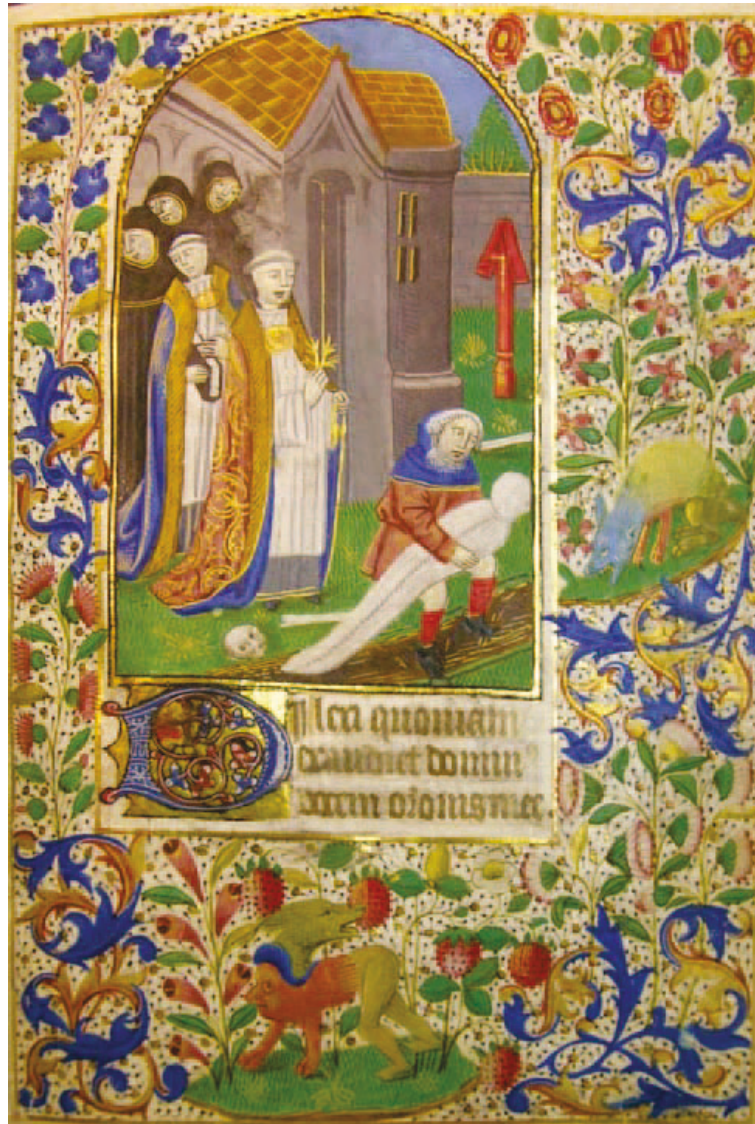 Dilexi quoniam
exaudiet dominꝰ
vocem oronis mee